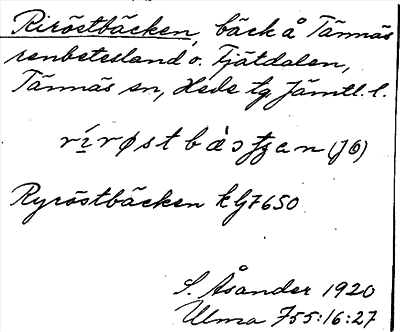 Riröstbäcken, bäck å Tännäs
renbetesland o. Fjätdalen,
Tännäs sn, Hede tg Jämtl. l.
(JÖ)
Ryröstbäcken kg 7650
S. Åsander 1920
Ulma 755:16:27